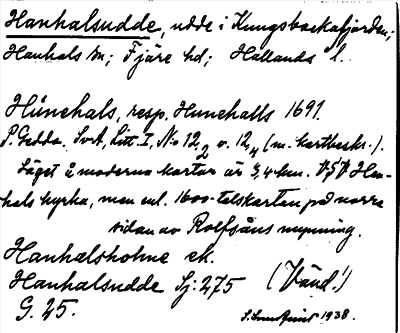 Hanhalsudde, udde i Kungsbackafjorden;
Hanhals sn; Fjäre hd; Hallands l.
Hünehals, resp. Hunehalls 1691.
P. Gedda. SvA, Litt. I, N:o 12,2 o. 12,4 (m. kartbeskr.).
Läget å moderna kartor är 3,4 km. VSV Han-
hals kyrka, men enl. 1600-talskartan på norra
sidan av Rolfsåns mynning.
Hanhalsholme ek.
Hanhalsudde Sj: 275 (Vänd!)
G. 25. 1938.